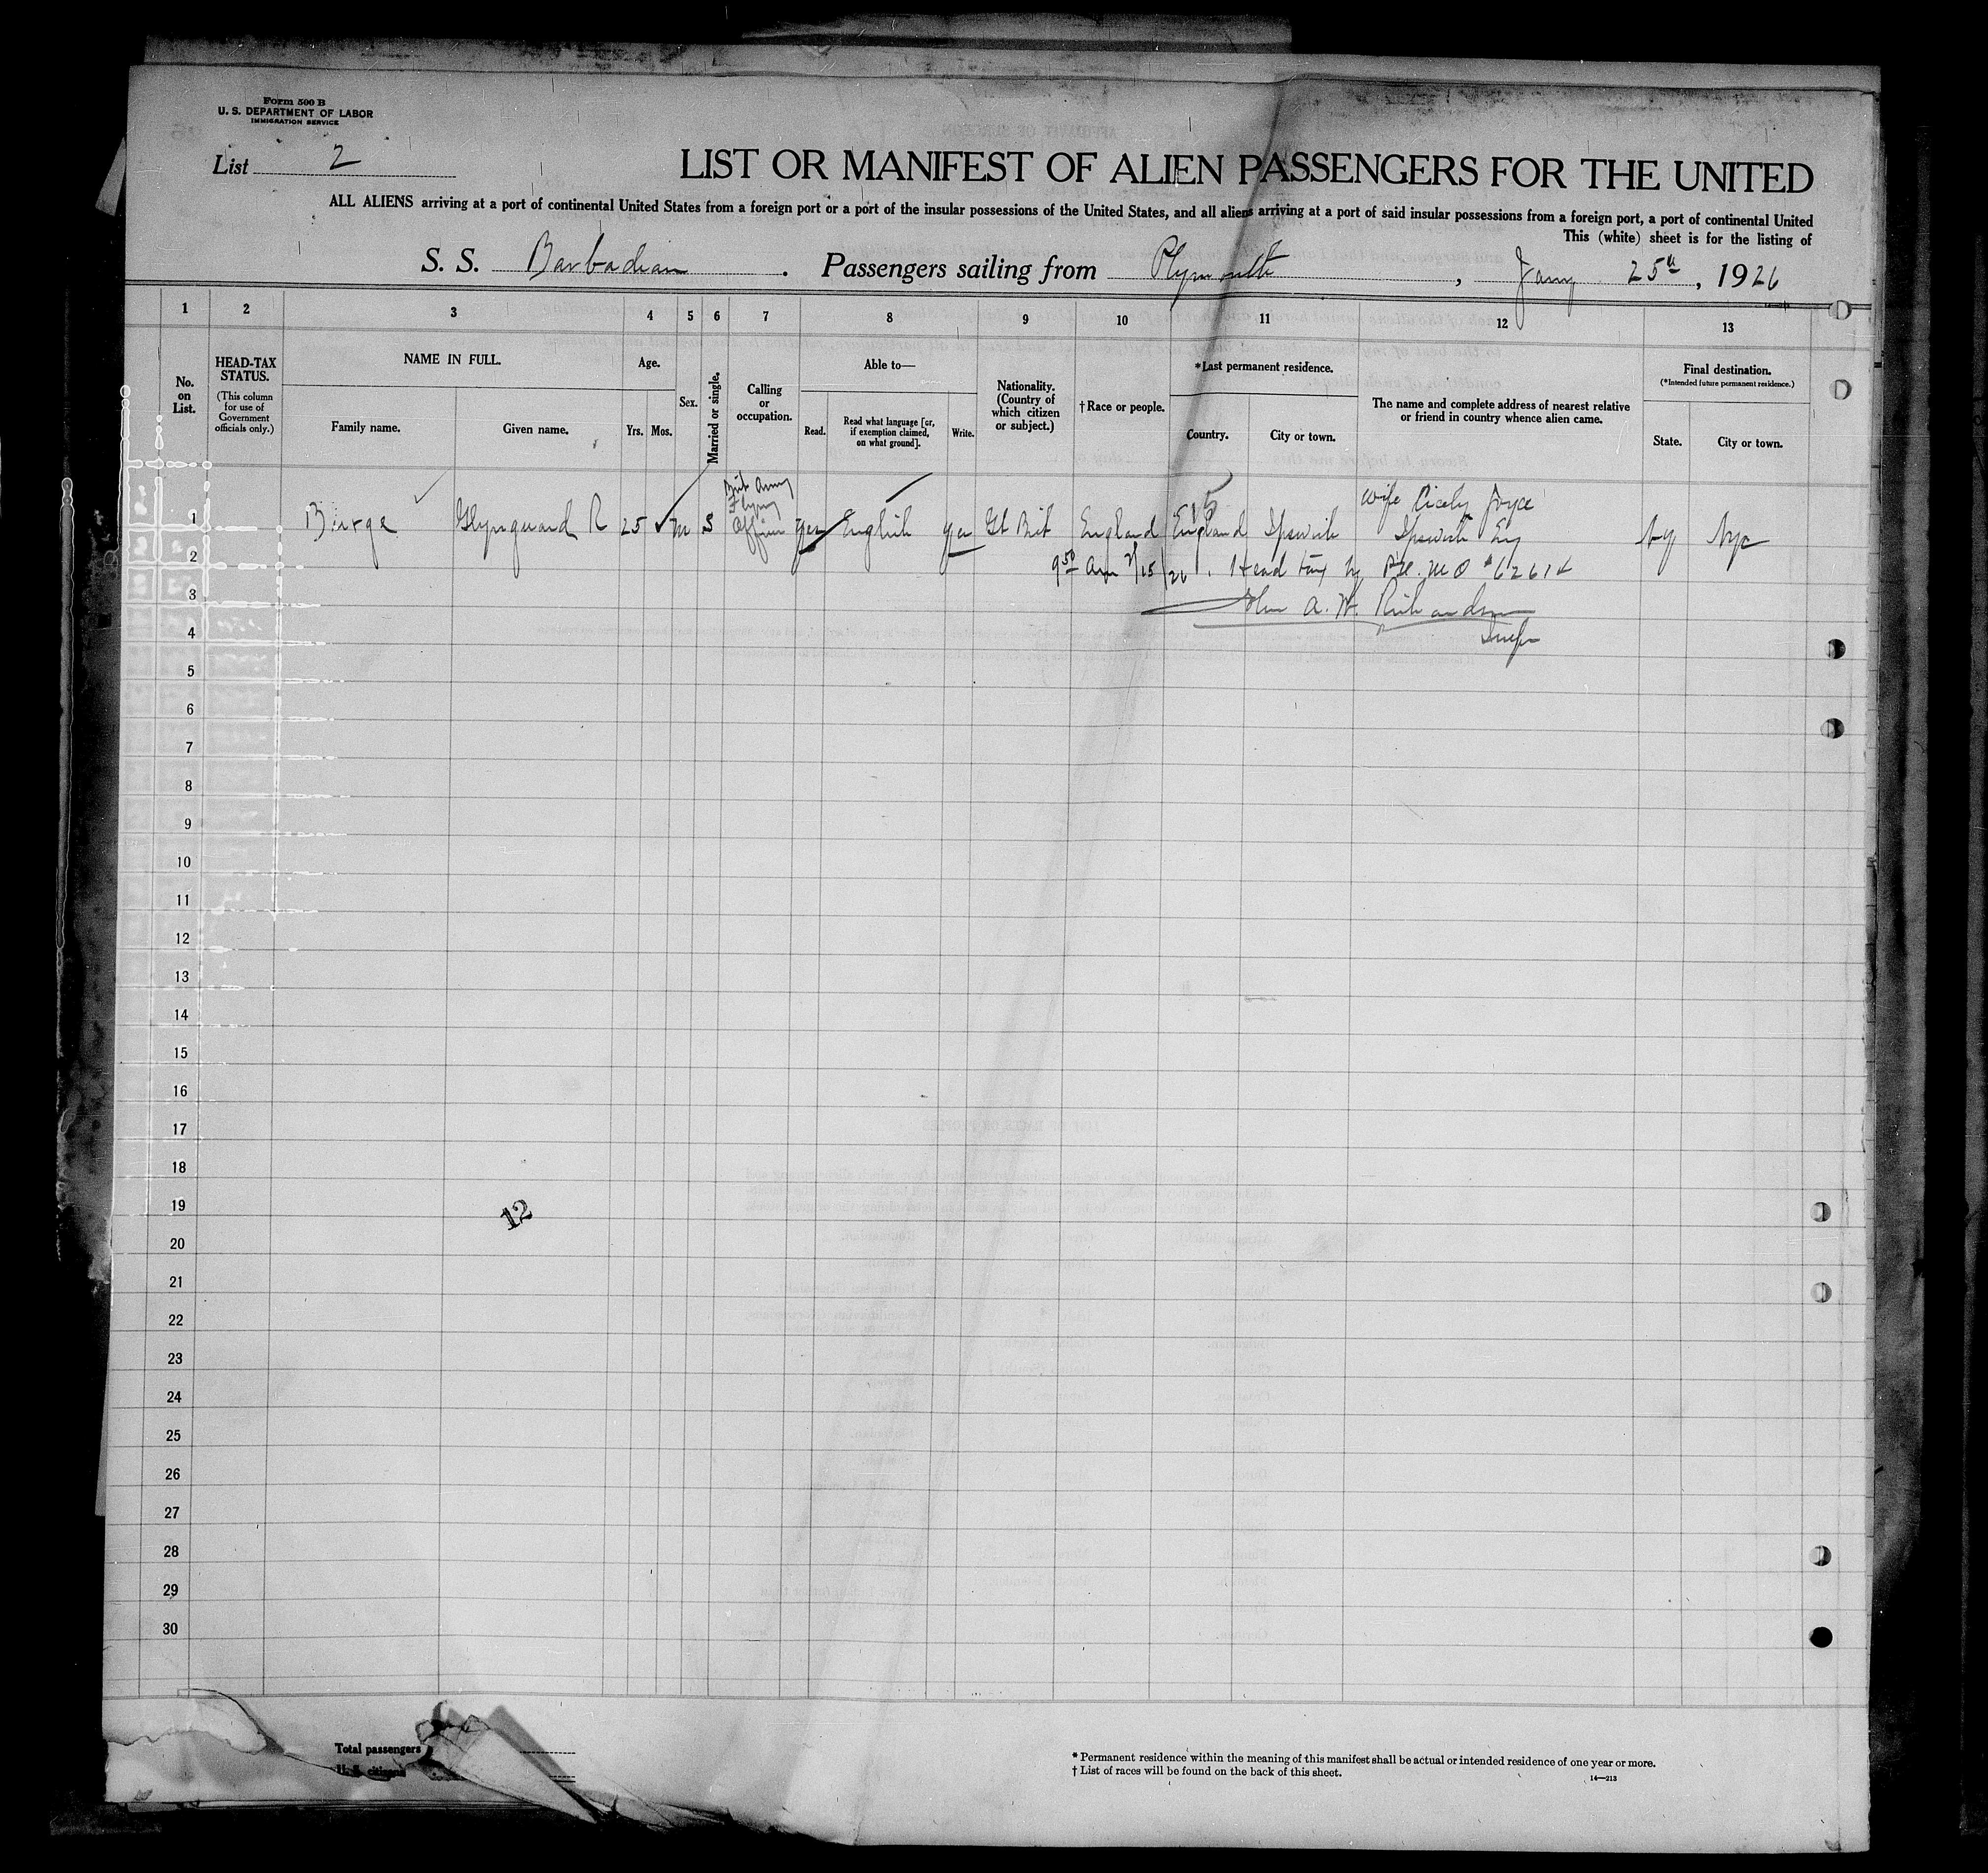 Form 500 B
U. S. DEPARTMENT OF LABOR
IMMIGRATION SERVICE
List 2
LIST OR MANIFEST OF ALIEN PASSENGERS FOR THE UNITED
ALL ALIENS arriving at a port of continental United States from a foreign port or a port of the insular possessions of the United States, and all aliens arriving at a port of said insular possessions from a foreign port, a port of continental United
This (white) sheet is for the listing of
S. S. Barbadian . Passengers sailing from Plymouth , Jany 25th , 1926
1 2 3 4 5 6 7 8 9 10 11 12 13
No. on List.
HEAD-TAX STATUS.
(This column for use of Government officials only.)
NAME IN FULL.
Family name.
Given name.
Age.
Yrs. Mos.
Sex.
Married or single.
Calling or occupation.
Able to—
Read.
Read what language [or, if exemption claimed, on what ground].
Write.
Nationality. (Country of which citizen or subject.)
† Race or people.
*Last permanent residence.
Country.
City or town.
The name and complete address of nearest relative or friend in country whence alien came.
Final destination.
(*Intended future permanent residence.)
State.
City or town.
Brit Army
Flying wife Cicely Joyce
1 Burge R 25 m S Officer yes English yes Gt Brit England England Ipswich Ipswich Eng NY NYC
2 9 50 am 2/15/26 . Head tax by M O # 62614
3 John A. W. Richardson
4 Insp
5
6
7
8
9
10
11
12
13
14
15
16
17
18
19
12
20
21
22
23
24
25
26
27
28
29
30
Total passengers
U. S. citizens
* Permanent residence within the meaning of this manifest shall be actual or intended residence of one year or more.
† List of races will be found on the back of this sheet.
14—213